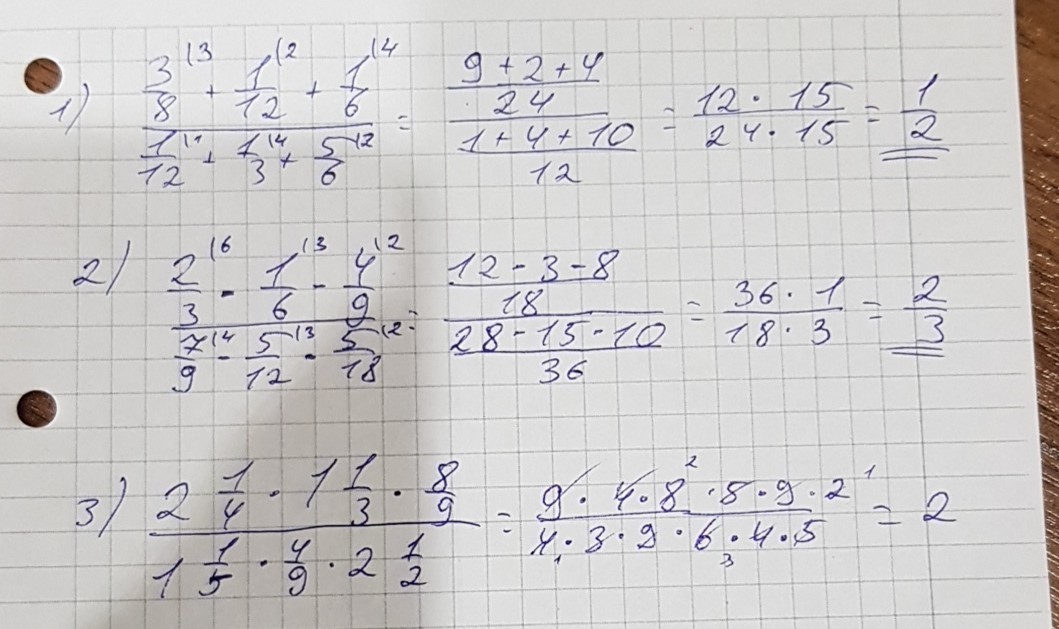 1) (3/8 ⁽³ + 1/12 ⁽² + 1/6 ⁽⁴) / (1/12 ⁽¹ + 1/3 ⁽⁴ + 5/6 ⁽²) = ((9+2+4)/24) / ((1+4+10)/12) = (12 · 15)/(24 · 15) = 1/2
2) (2/3 ⁽⁶ - 1/6 ⁽³ - 4/9 ⁽²) / (7/9 ⁽⁴ - 5/12 ⁽³ - 5/18 ⁽²) = ((12-3-8)/18) / ((28-15-10)/36) = (36 · 1)/(18 · 3) = 2/3
3) (2 1/4 · 1 1/3 · 8/9) / (1 1/5 · 4/9 · 2 1/2) = (9 · 4 · 8² · 5 · 9 · 2¹)/(4₁ · 3 · 9 · 6₃ · 4 · 5) = 2